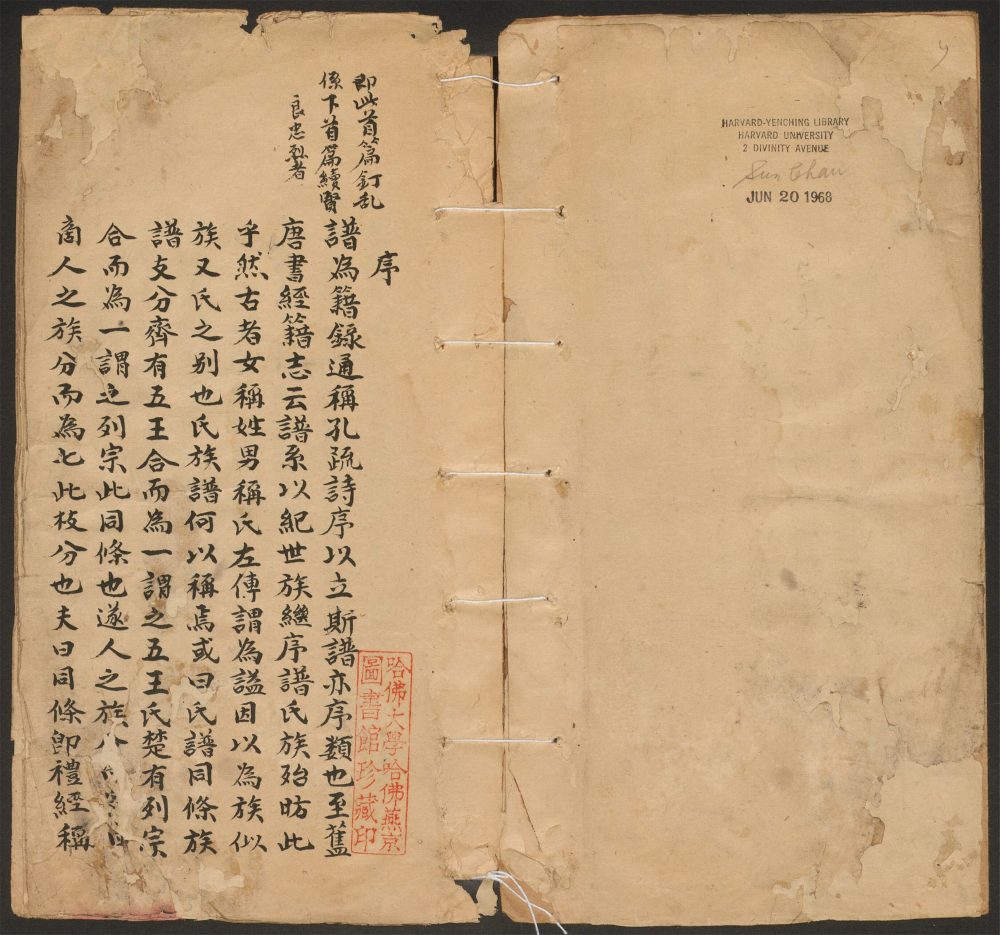 HARVARD-YENCHING LIBRARY
HARVARD UNIVERSITY
2 DIVINITY AVENUE
Sun Chau
JUN 20 1968
即此首篇釘乱
係下首篇續賢
良忠烈者
序
譜為籍錄通稱孔疏詩序以立斯譜亦序類也至舊
唐書經籍志云譜系以紀世族繼序譜氏族殆昉此
乎然古者女稱姓男稱氏左傳謂為謚因以為族似
族又氏之别也氏族譜何以稱焉或曰氏譜同條族
譜支分齊有五王合而為一謂之五王氏楚有列宗
合而為一謂之列宗此同條也遂人之族
商人之族分而為七此枝分也夫曰同條即禮經稱
哈佛大學哈佛燕京
圖書館珍藏印